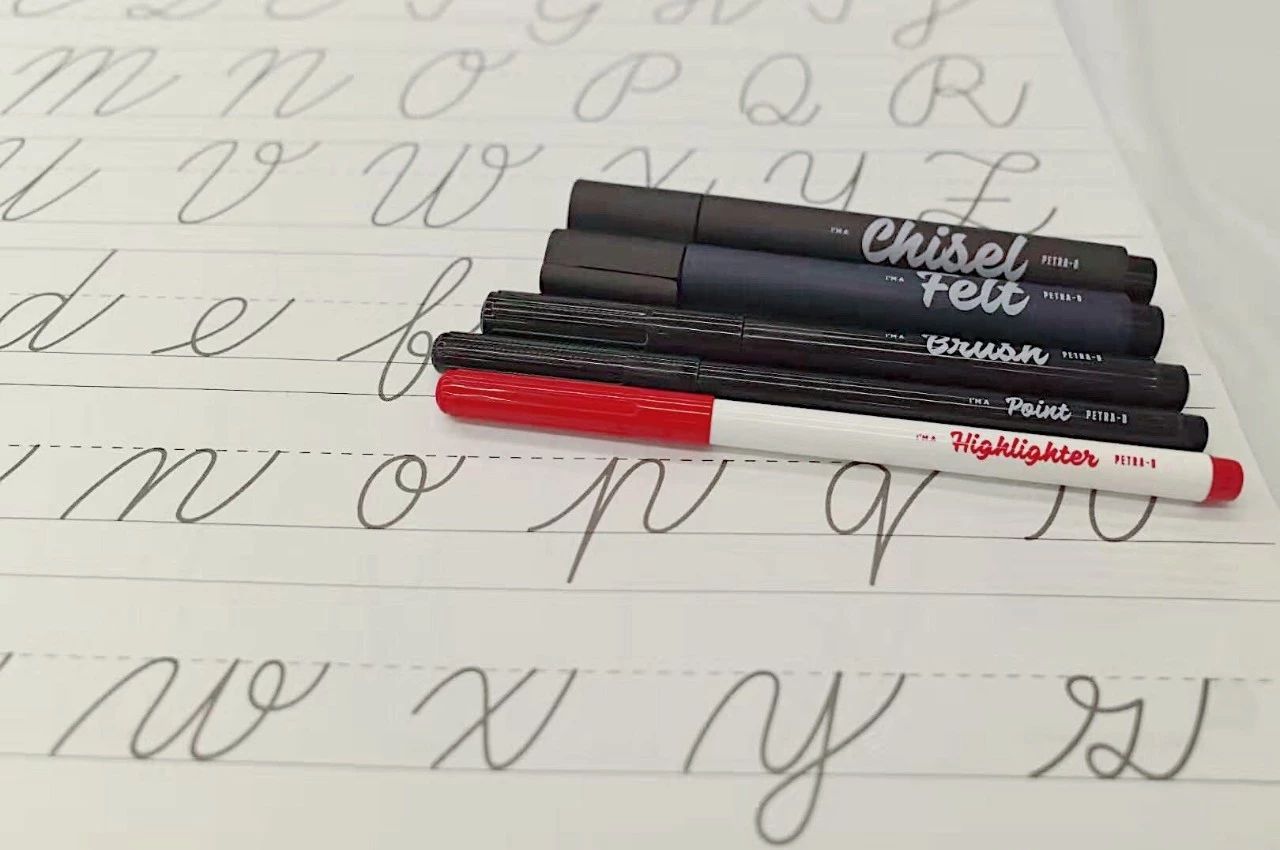 M N O P Q R
U V W X Y Z
d e f
n o p q r
w x y z
I'M A Chisel PETRA-B
I'M A Felt PETRA-B
I'M A Brush PETRA-B
I'M A Point PETRA-B
I'M A Highlighter PETRA-B